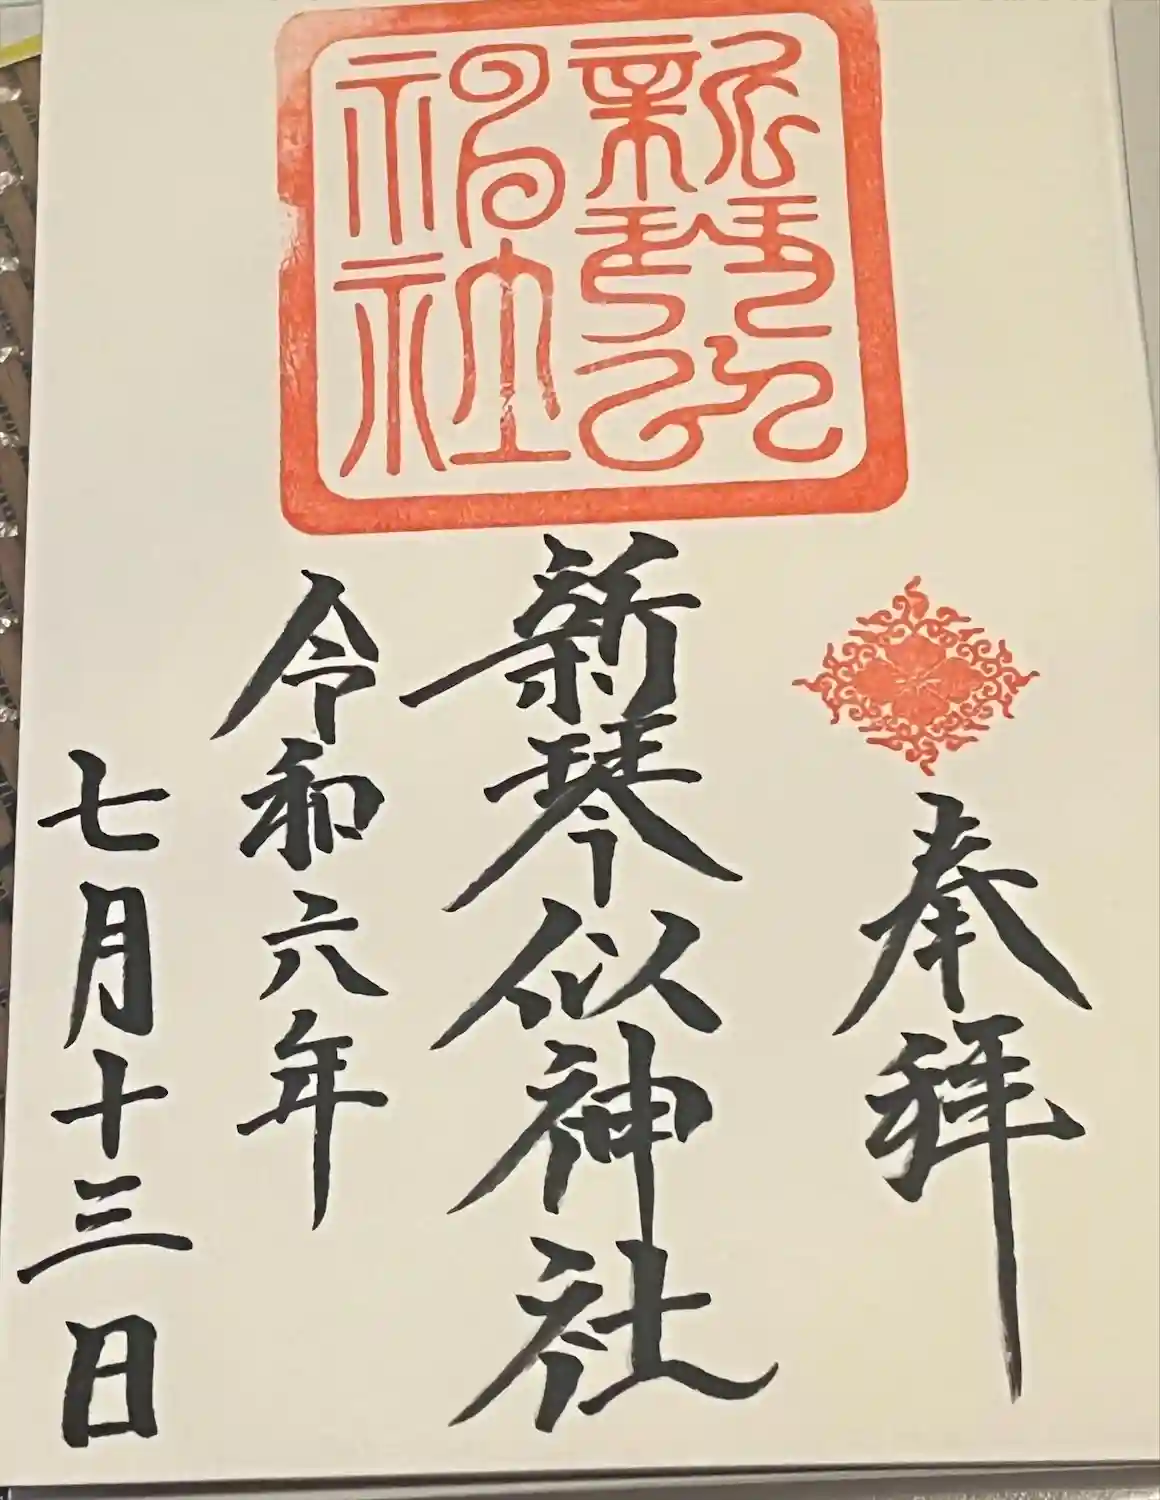 奉拝
新琴似神社
令和六年
七月十三日
新琴似神社